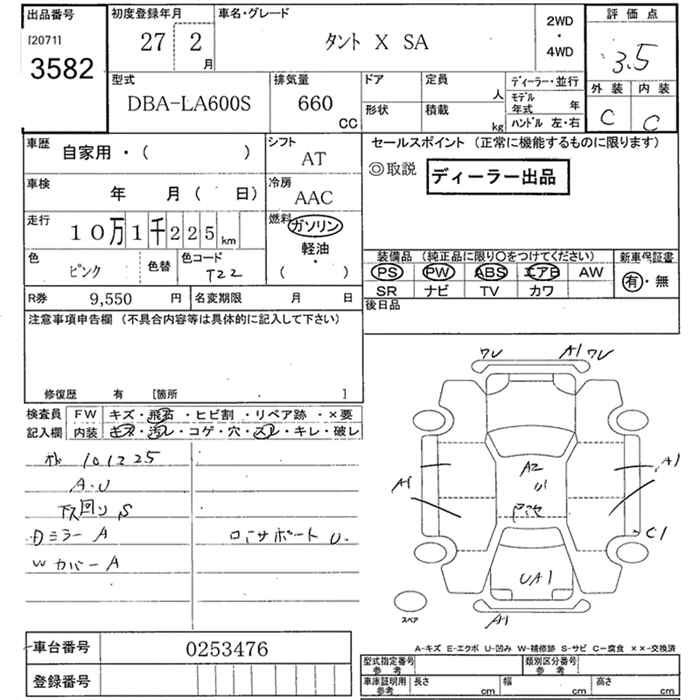 出品番号 初度登録年月 車名・グレード 2WD・4WD 評価点
[20711] 27 2月 タント X SA 3.5
3582
型式 排気量 ドア 定員 人 ディーラー・並行 外装 内装
DBA-LA600S 660 CC 形状 積載 kg モデル年式 年 C C
ハンドル 左・右
車歴 自家用・( ) シフト AT セールスポイント (正常に機能するものに限ります)
◎取説 ディーラー出品
車検 年 月( 日) 冷房 AAC
走行 10万1千225km 燃料 ガソリン
軽油・
( )
色 ピンク 色替 色コード T22
装備品 (純正品に限り○をつけてください) 新車保証書
PS PW ABS エアB AW 有・無
SR ナビ TV カワ
R券 9,550円 名変期限 月 日 後日品
注意事項申告欄 (不具合内容等は具体的に記入して下さい)
修復歴 有 [箇所 ]
検査員 FW キズ・飛石・ヒビ割・リペア跡・×要
記入欄 内装 キズ・汚レ・コゲ・穴・スレ・キレ・破レ
101225
A.U
下回り S
Dミラー A
Wカバー A
ロッカサポート U.
ワレ A1 ワレ
A2
U1
A1 A1
C1
UA1
A1
スペア
A-キズ E-エクボ U-凹み W-補修跡 S-サビ C-腐食 ××-交換済
車台番号 0253476
登録番号
型式指定番号 参考 類別区分番号 参考
車庫証明用 参考 長さ cm 幅 cm 高さ cm